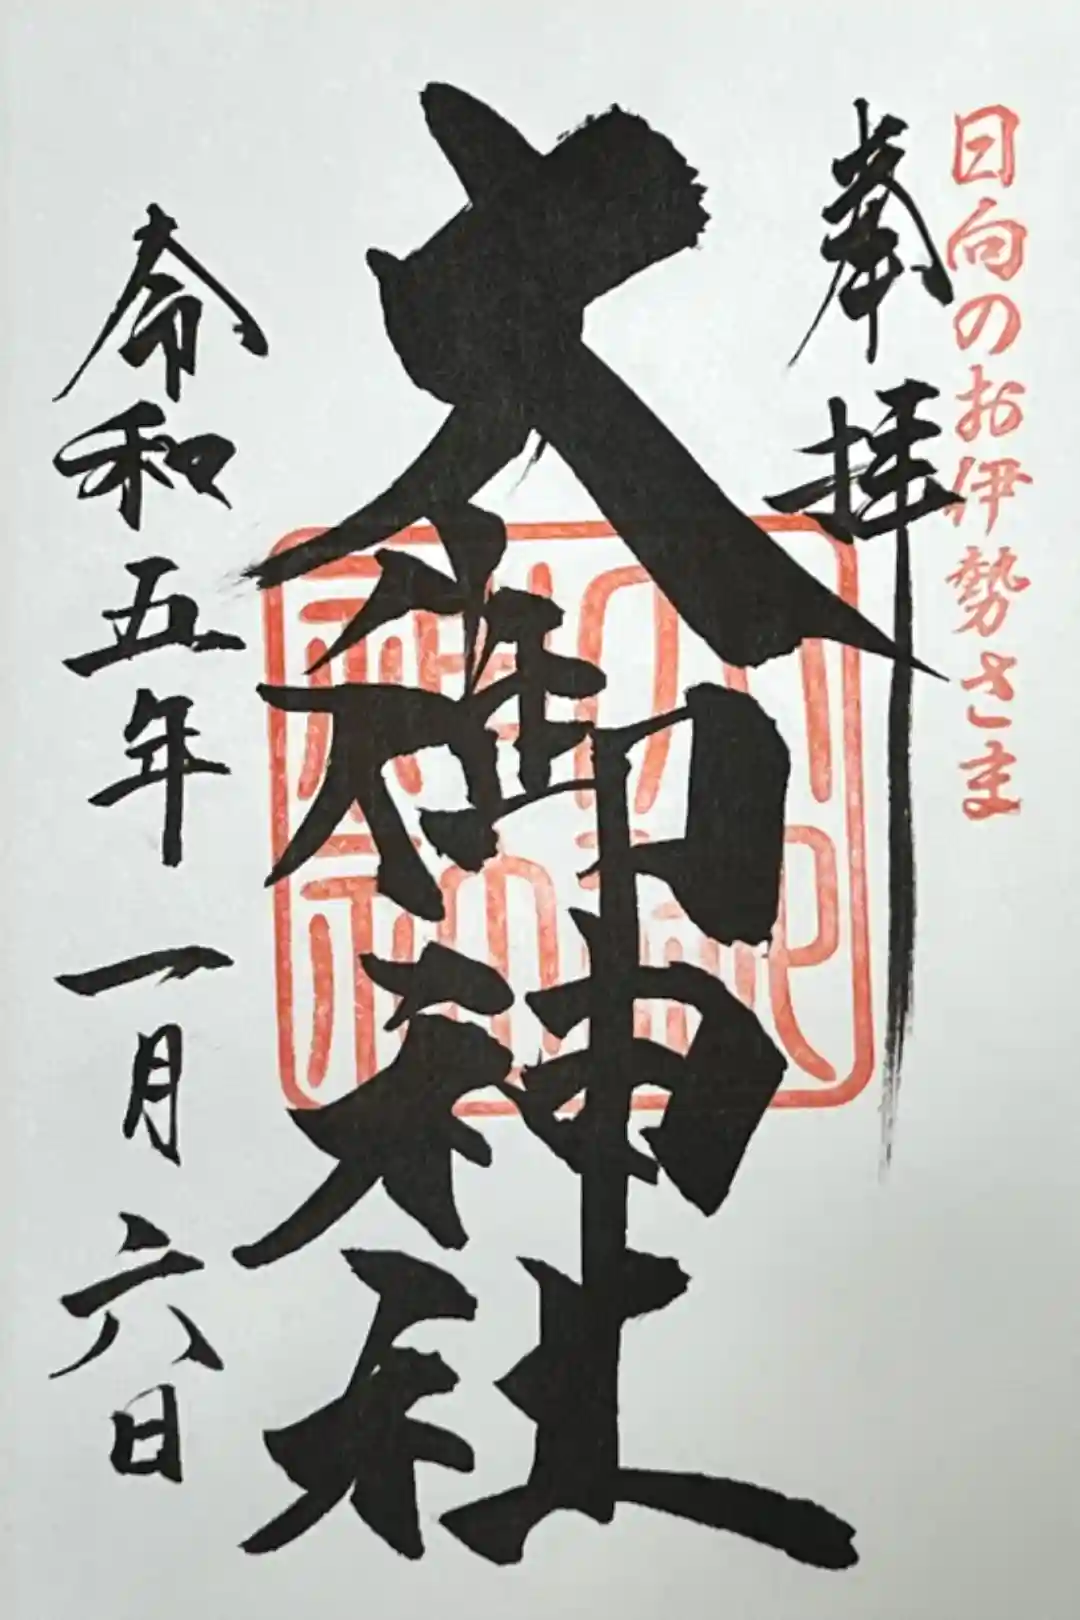 日向のお伊勢さま
奉拝
大御神社
令和五年一月六日